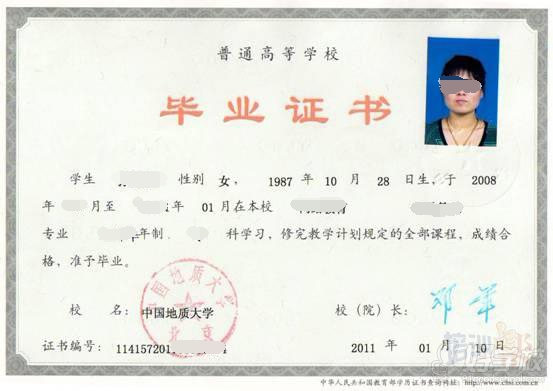 普通高等学校
毕业证书
学生 性别 女, 1987 年 10 月 28 日生,于 2008
年 月至 年 01 月在本校
专业 年制 科学习,修完教学计划规定的全部课程,成绩合
格,准予毕业。
校 名: 中国地质大学
校(院)长: 邓军
中国地质大学
北京
证书编号: 114157201
2011 年 01 月 10 日
中华人民共和国教育部学历证书查询网址: http://www.chsi.com.cn